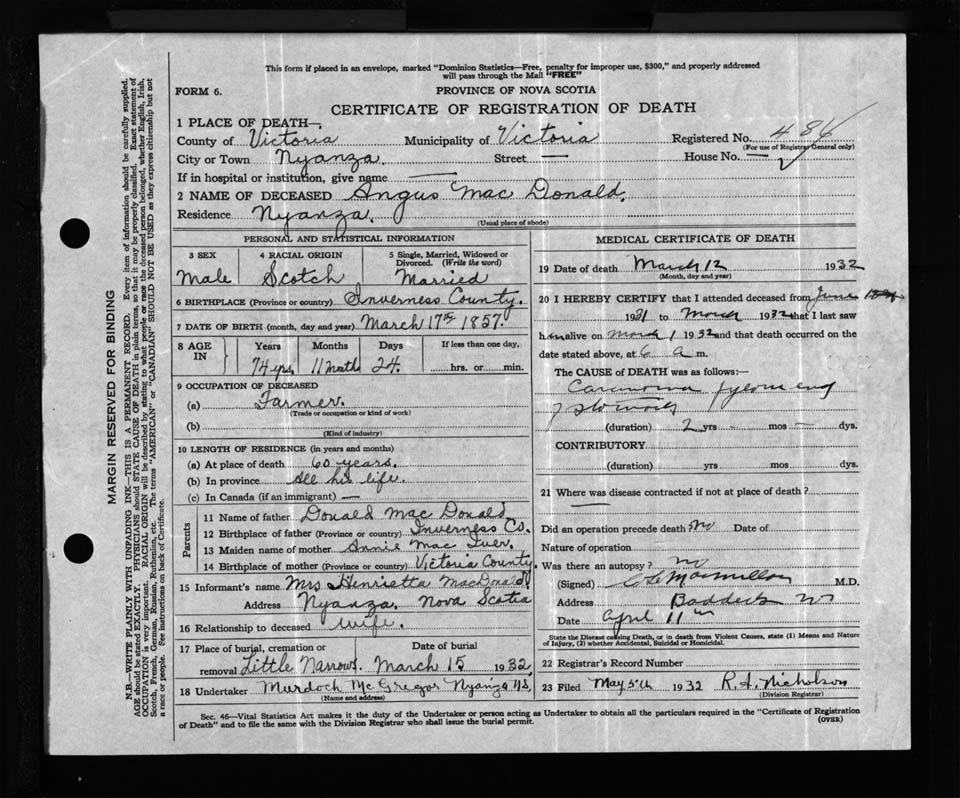 This form if placed in an envelope, marked "Dominion Statistics—Free, penalty for improper use, $300," and properly addressed
will pass through the Mail "FREE"
FORM 6. PROVINCE OF NOVA SCOTIA
CERTIFICATE OF REGISTRATION OF DEATH
1 PLACE OF DEATH—
County of Victoria Municipality of Victoria Registered No. 486
(For use of Registrar General only)
City or Town Nyanza. Street — House No. —
If in hospital or institution, give name —
2 NAME OF DECEASED Angus Mac Donald.
Residence Nyanza.
(Usual place of abode)
PERSONAL AND STATISTICAL INFORMATION
3 SEX 4 RACIAL ORIGIN 5 Single, Married, Widowed or
Divorced. (Write the word)
Male Scotch Married
6 BIRTHPLACE (Province or country) Inverness County.
7 DATE OF BIRTH (month, day and year) March 17th 1857.
8 AGE IN Years Months Days If less than one day,
74 yrs. 11 Months 24. hrs. or min.
9 OCCUPATION OF DECEASED
(a) Farmer.
(Trade or occupation or kind of work)
(b)
(Kind of industry)
10 LENGTH OF RESIDENCE (in years and months)
(a) At place of death 60 years.
(b) In province All his life.
(c) In Canada (if an immigrant) —
Parents
11 Name of father Donald Mac Donald
12 Birthplace of father (Province or country) Inverness Co.
13 Maiden name of mother Annie Mac Iver.
14 Birthplace of mother (Province or country) Victoria County.
15 Informant's name Mrs Henrietta MacDonald
Address Nyanza. Nova Scotia
16 Relationship to deceased wife.
17 Place of burial, cremation or Date of burial
removal Little Narrows. March 15 1932.
18 Undertaker Murdoch McGregor Nyanza N.S.
(Name and address)
MEDICAL CERTIFICATE OF DEATH
19 Date of death March 12 1932
(Month, day and year)
20 I HEREBY CERTIFY that I attended deceased from June
1931 to March 1932 that I last saw
him alive on March 1 1932 and that death occurred on the
date stated above, at 6 a m.
The CAUSE OF DEATH was as follows:—
Carcinoma end
(duration) 2 yrs — mos — dys.
CONTRIBUTORY
(duration) yrs mos dys.
21 Where was disease contracted if not at place of death?
—
Did an operation precede death? No Date of
Nature of operation
Was there an autopsy? no
(Signed) M.D.
Address Baddeck
Date April 11th
State the Disease causing Death, or in death from Violent Causes, state (1) Means and Nature
of Injury, (2) whether Accidental, Suicidal or Homicidal.
22 Registrar's Record Number
23 Filed May 5th 1932 R. A. Nicholson
(Division Registrar)
Sec. 46—Vital Statistics Act makes it the duty of the Undertaker or person acting as Undertaker to obtain all the particulars required in the "Certificate of Registration
of Death" and to file the same with the Division Registrar who shall issue the burial permit. (OVER)
MARGIN RESERVED FOR BINDING
N.B.—WRITE PLAINLY WITH UNFADING INK—THIS IS A PERMANENT RECORD. Every item of information should be carefully supplied.
AGE should be stated EXACTLY. PHYSICIANS should STATE CAUSE OF DEATH in plain terms, so that it may be properly classified. Exact statement of
OCCUPATION is very important. RACIAL ORIGIN will be described by stating to what people or race the deceased person belonged, whether English, Irish,
Scotch, French, German, Russian, Ruthenian, etc. The terms "AMERICAN" or "CANADIAN" SHOULD NOT BE USED as they express citizenship but not
a race or people. See instructions on back of Certificate.